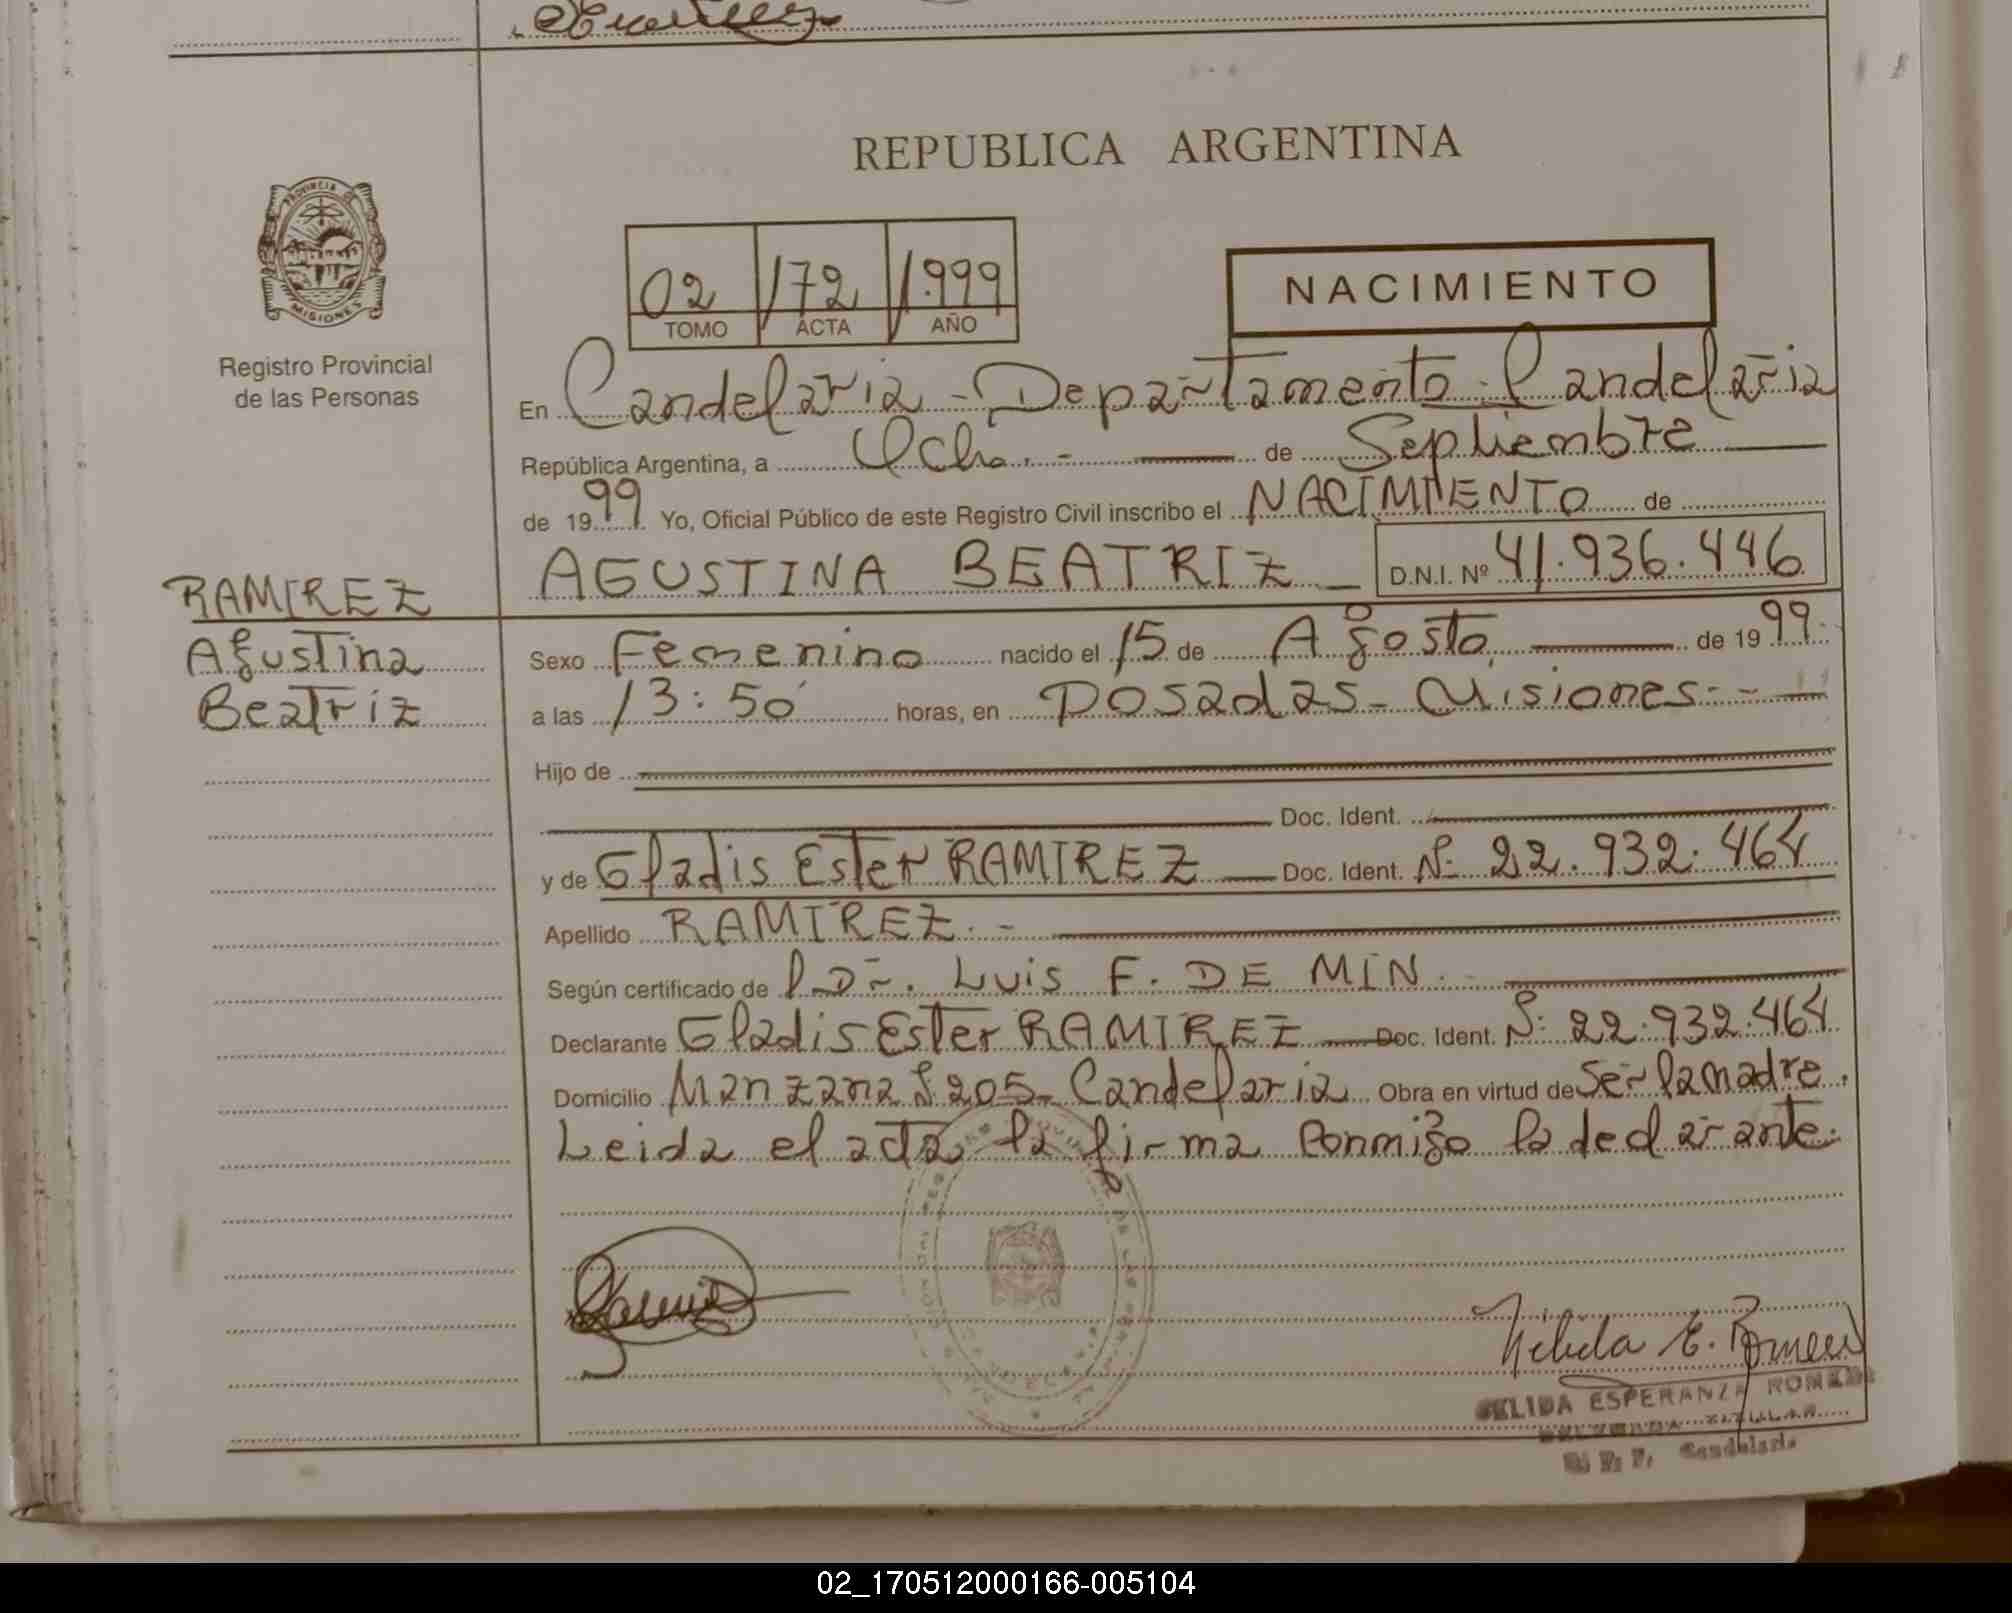 REPUBLICA ARGENTINA
PROVINCIA DE
MISIONES
Registro Provincial
de las Personas
02 172 1.999
TOMO ACTA AÑO
NACIMIENTO
En Candelaria - Departamento Candelaria
República Argentina, a Ocho. - de Septiembre
de 1999 Yo, Oficial Público de este Registro Civil inscribo el NACIMIENTO de
AGUSTINA BEATRIZ D.N.I. Nº 41.936.446
RAMIREZ
Agustina
Beatriz
Sexo Femenino nacido el 15 de Agosto, de 1999.
a las 13:50 horas, en Posadas - Misiones. -
Hijo de
Doc. Ident.
y de Gladis Ester RAMIREZ Doc. Ident. Nº 22.932.464
Apellido RAMIREZ. -
Según certificado de l Dr. Luis F. DE MIN.
Declarante Gladis Ester RAMIREZ Doc. Ident. Nº 22.932.464
Domicilio Manzana Nº 205 - Candelaria Obra en virtud de Ser la madre.
Leida el acta la firma conmigo la declarante.
Nelida E. Romero
NELIDA ESPERANZA ROMERO
DELEGADA TITULAR
Candelaria
02_170512000166-005104